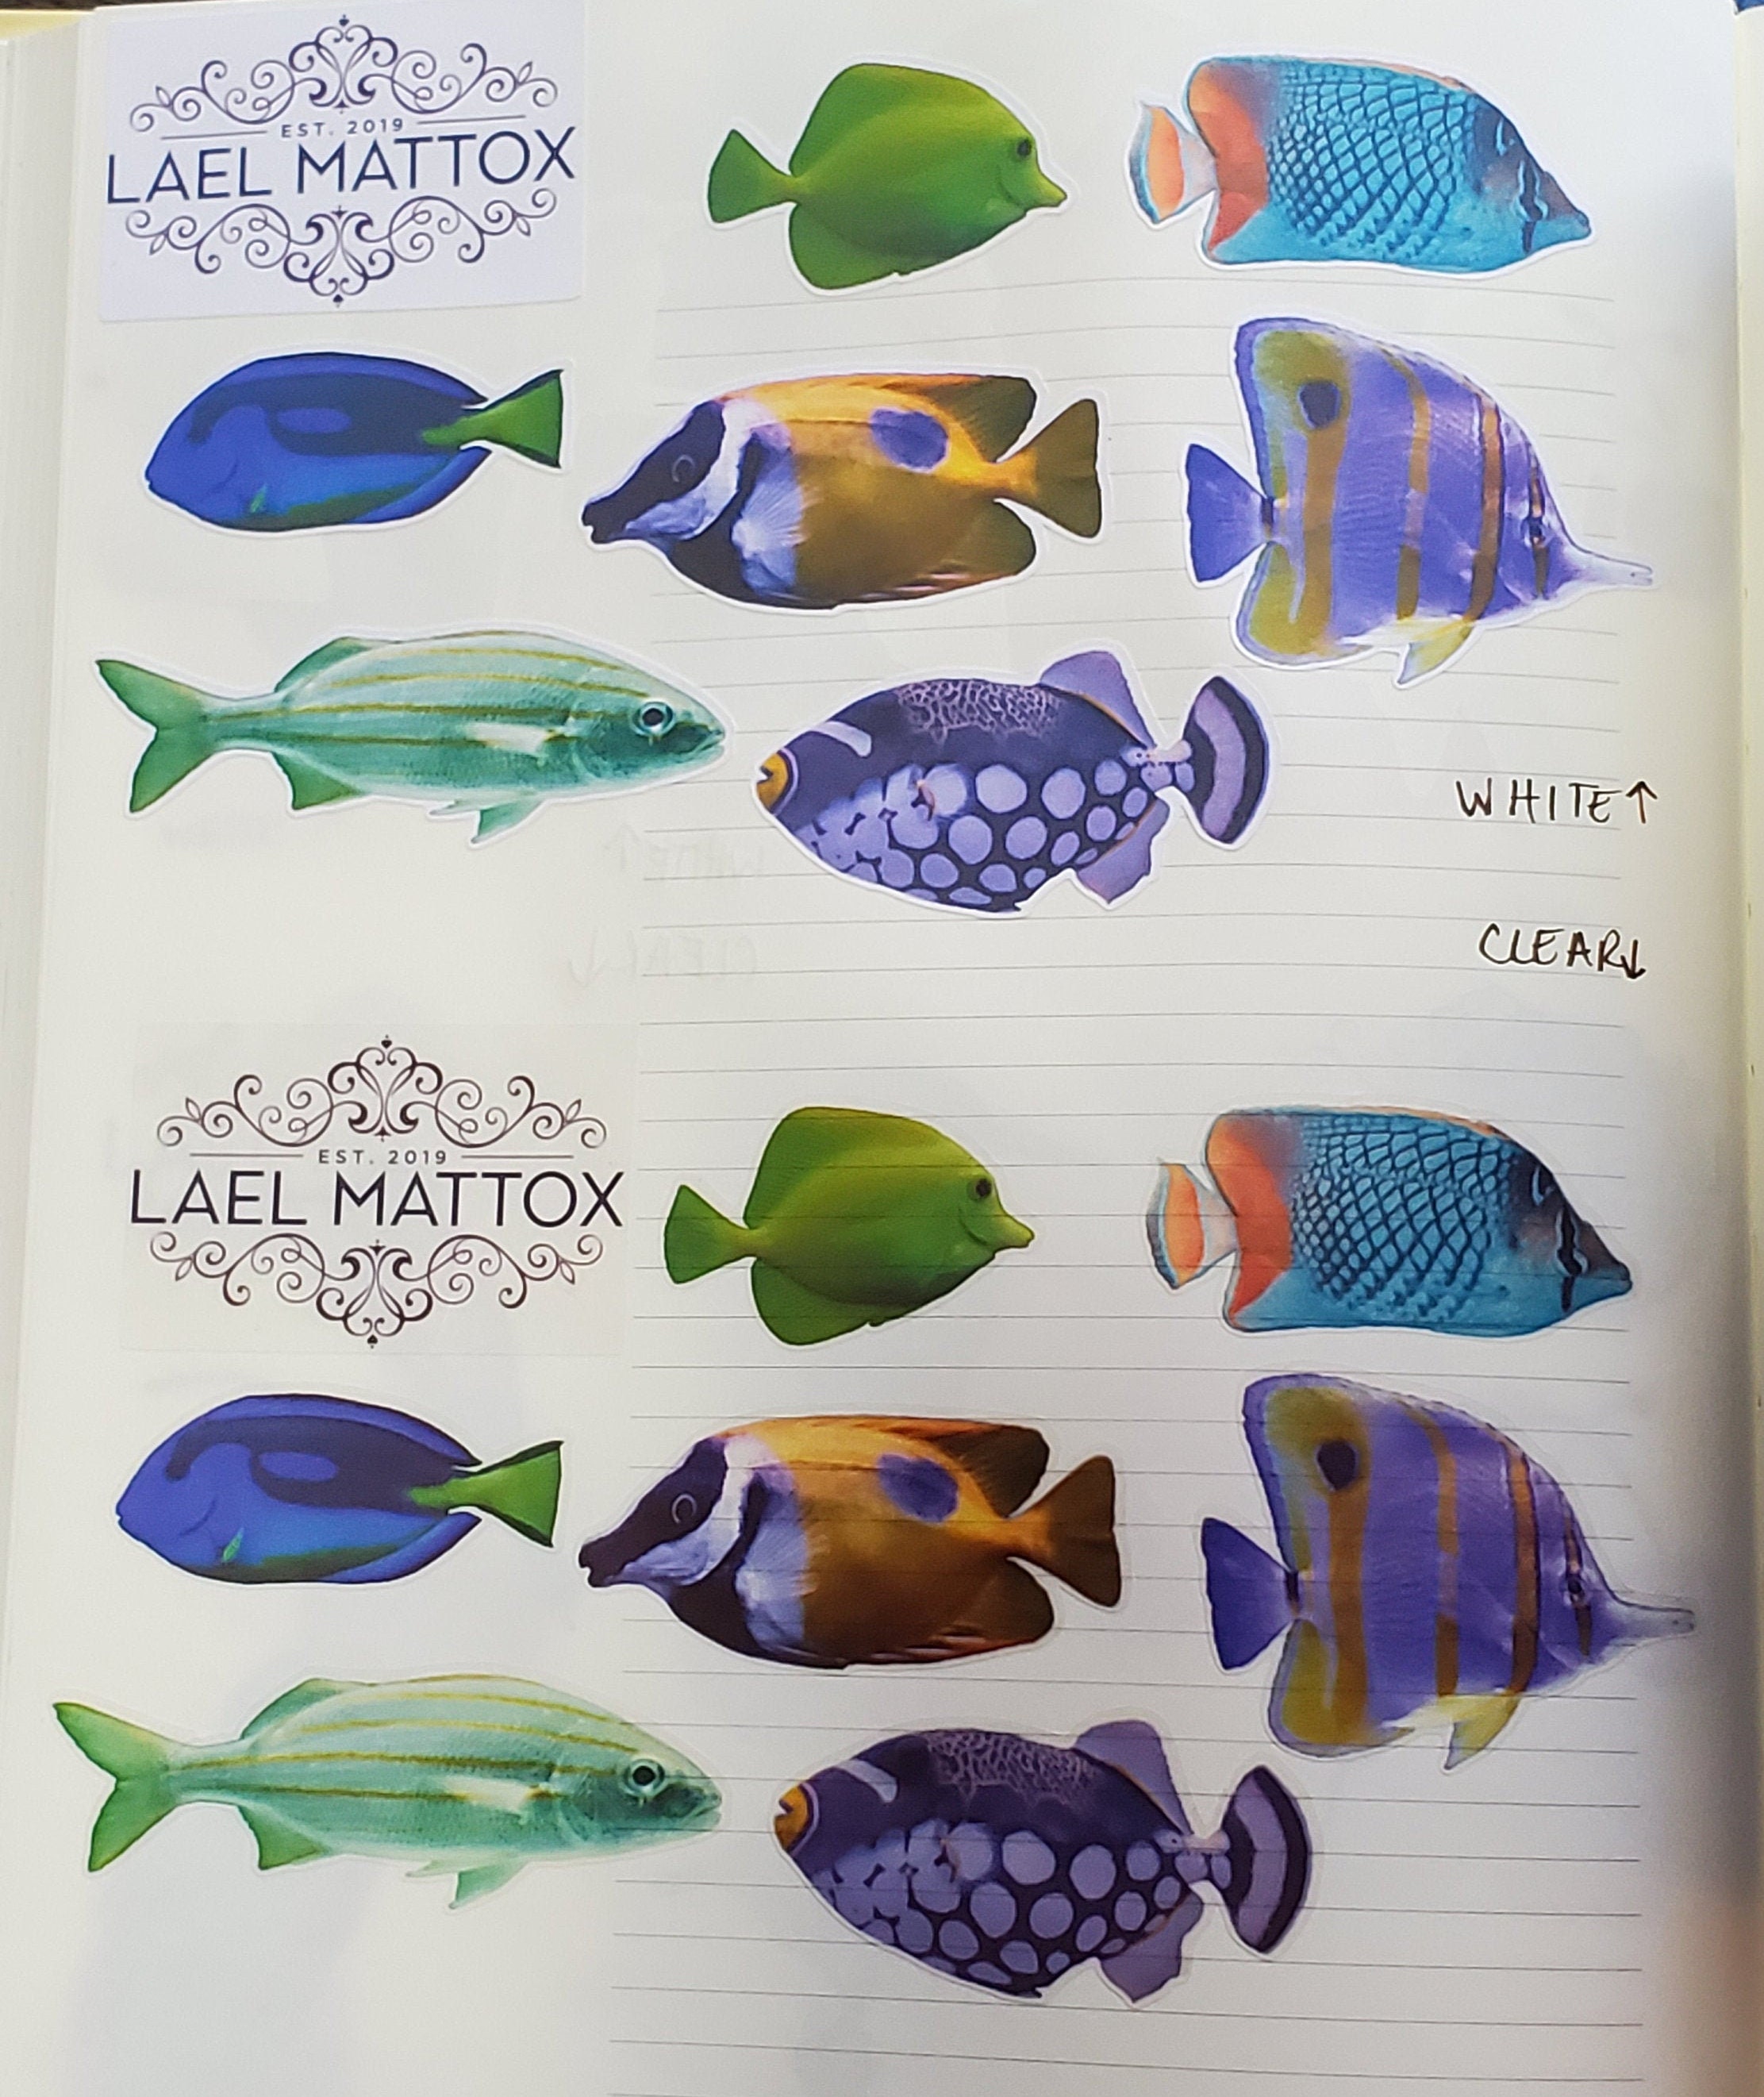 EST. 2019
LAEL MATTOX
WHITE↑
CLEAR↓
EST. 2019
LAEL MATTOX